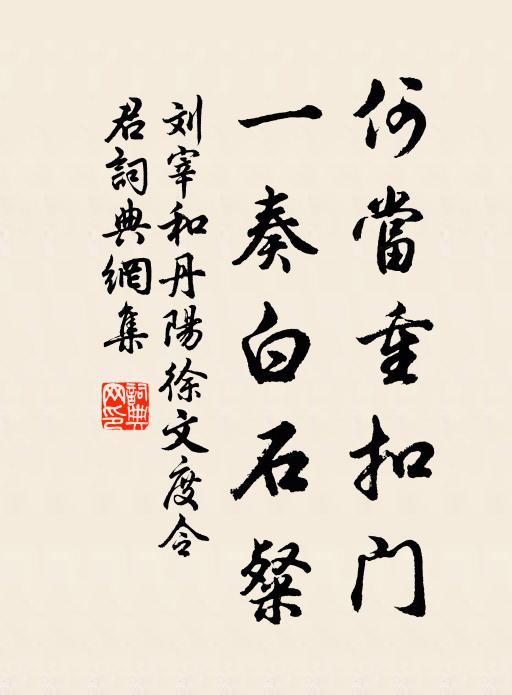 何當重扣门
一奏白石粲
刘宰和丹陽徐文度令
君詞典網集
詞典网印